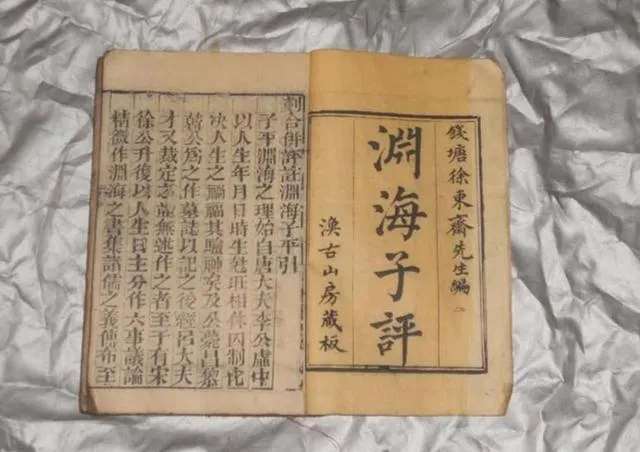 錢塘徐東齋先生編
淵海子評
漢古山房藏板
刻合併評註淵海子平引
子平淵海之理始自唐大夫李公虛中
以人生年月日時生尅旺相休囚制化
决人生之禍福其驗神矣及公薨昌黎
韓公爲之作墓誌以記之後經呂大夫
才又裁定之並無述作之者至于有宋
徐公升復以人生日主分作六事議論
精微作淵海之書集諸儒之義傳布至